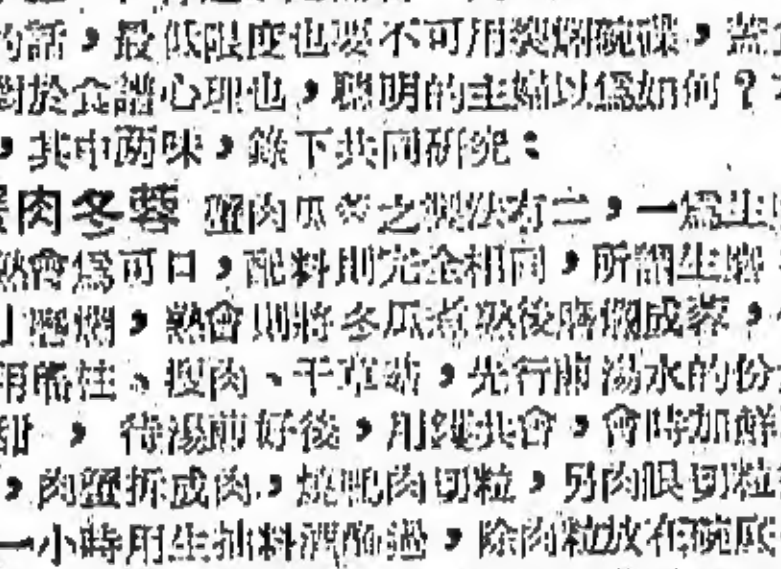 的話，最低限度也要不可用裂爛碗碟，蓋
對於食譜心理也，聰明的主婦以爲如何？
，其中兩味，錄下共同研究：
肉冬蓉 蟹肉瓜蓉之製法有二，一爲生
熟會爲可口，配料則完全相同，所謂生磨
磨爛，熟會則將冬瓜煮熟後磨爛成蓉，
用瑤柱、瘦肉、干草菇，先行煎湯水的份
，待湯煎好後，用鑊共會，會時加鮮
，肉蟹拆成肉，燒鴨肉切粒，另肉眼切粒
一小時用生抽料酒醃過，除肉粒放在碗底